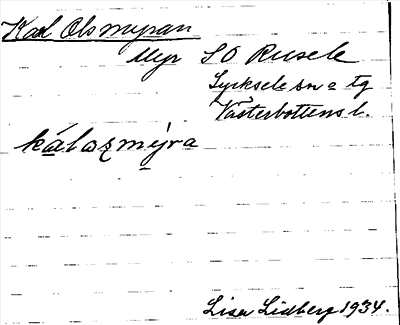 Karl Olsmyran
Myr SO Rusele
Lycksele sn o tg
Västerbottens l.
kálazmýra
Lisa Lidberg 1934.